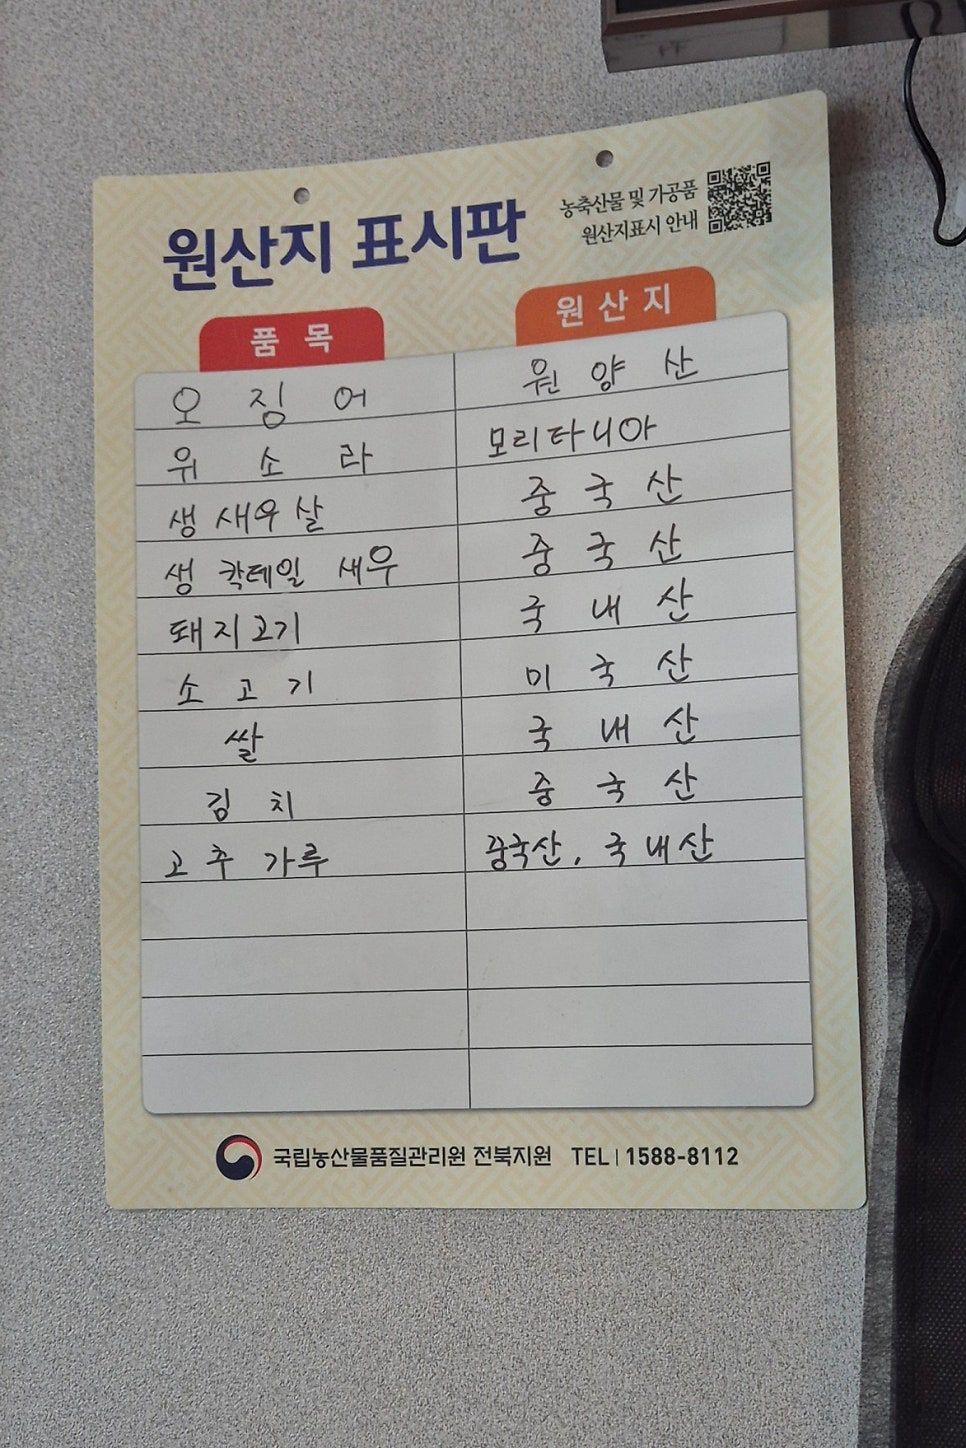 농축산물 및 가공품
원산지표시 안내
원산지 표시판
품 목 원 산 지
오 징 어 원 양 산
위 소 라 모리타니아
생 새우 살 중 국 산
생 칵테일 새우 중 국 산
돼지고기 국 내 산
소 고 기 미 국 산
쌀 국 내 산
김 치 중 국 산
고 추 가루 중국산, 국내산
국립농산물품질관리원 전북지원 TEL | 1588-8112